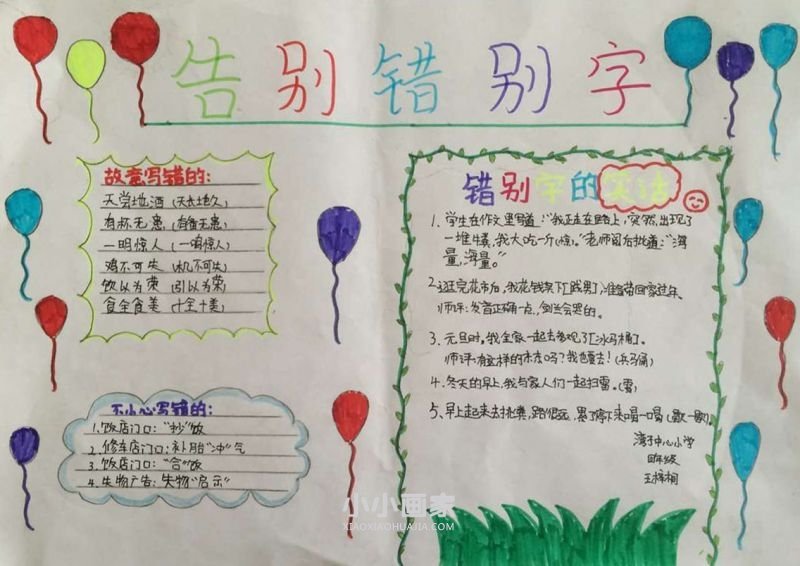 告别错别字
故意写错的:
天尝地酒 (天长地久)
有杯无患 (有备无患)
一明惊人 (一鸣惊人)
鸡不可失 (机不可失)
饮以为荣 (引以为荣)
食全食美 (十全十美)
不小心写错的:
1.饭店门口:“抄”饭
2.修车店门口:补胎“冲”气
3.饭店门口:“合”饭
4.失物广告:失物“启示”
错别字的笑话
1.学生在作文里写道:“我正走在路上,突然,出现了
一堆牛粪,我大吃一斤(惊)。”老师阅后批道:“海
量,海量。”
2.逛完花市后,我花钱买下[贱男],准备带回家过年。
师评:发音正确一点,剑兰会哭的。
3.元旦时,我全家一起去参观了[冰马桶]。
师评:有这样的东东吗?我也要去!(兵马俑)
4.冬天的早上,我与家人们一起扫雪。(雪)
5.早上起来去挑粪,路很远,累了停下来喝一喝(歇一歇)。
中心小学
四年级
小小画家
XIAOXIAOHUAJIA.COM